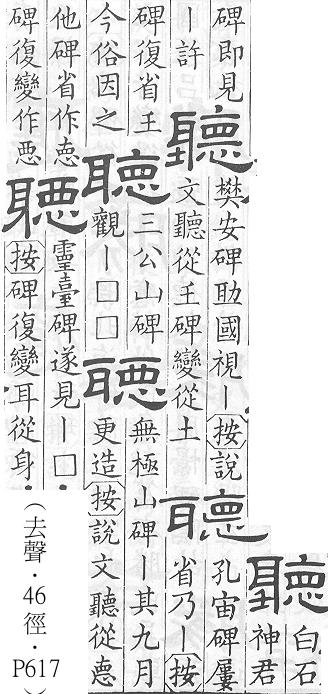 聽
白石
神君
碑即見
丨許
聽
樊安碑助國視丨按說
文聽從王碑變從土
聽
孔宙碑屢
省乃丨按
碑復省王
今俗因之
聽
三公山碑
觀丨□□
聽
無極山碑丨其九月
更造按說文聽從悳
他碑省作恴
碑復變作𢛳
聽
靈臺碑遂見丨□
按碑復變耳從身
（去聲．46徑．P617）